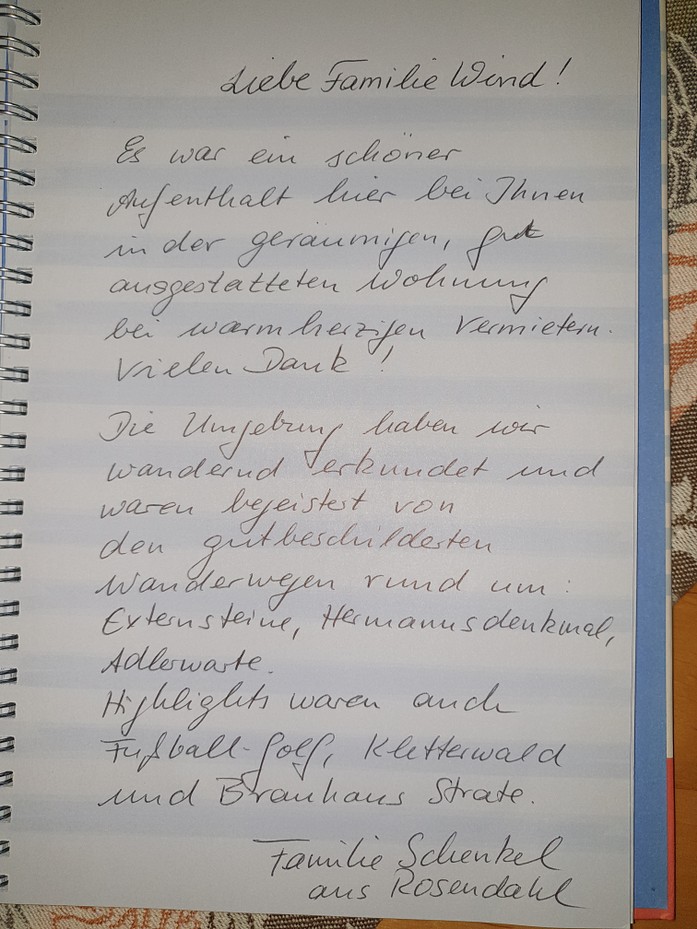 Liebe Familie Wind!
Es war ein schöner
Aufenthalt hier bei Ihnen
in der geräumigen, gut
ausgestatteten Wohnung
bei warmherzigen Vermietern.
Vielen Dank!
Die Umgebung haben wir
wandernd erkundet und
waren begeistert von
den gutbeschilderten
Wanderwegen rund um:
Externsteine, Hermannsdenkmal,
Adlerwarte.
Highlights waren auch
Fußball-Golf, Kletterwald
und Brauhaus Strate.
Familie Schenkel
aus Rosendahl